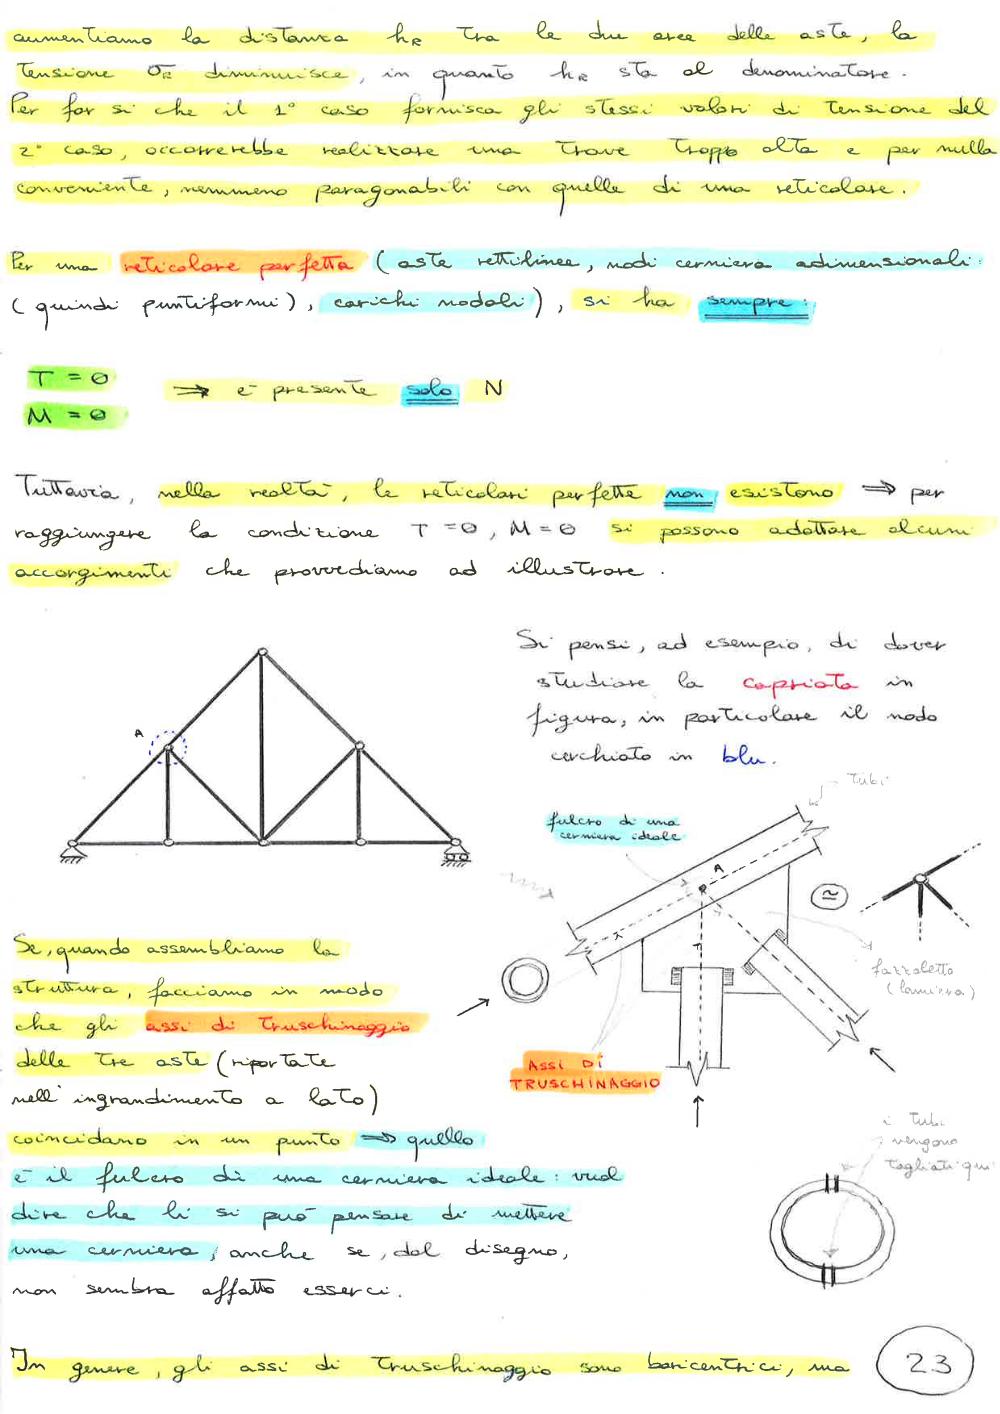 aumentiamo la distanza hR tra le due aree delle aste, la
tensione σR diminuisce, in quanto hR sta al denominatore.
Per far si che il 1° caso fornisca gli stessi valori di tensione del
2° caso, occorrerebbe realizzare una trave troppo alta e per nulla
conveniente, nemmeno paragonabili con quelle di una reticolare.
Per una reticolare perfetta (aste rettilinee, nodi cerniera adimensionali
(quindi puntiformi), carichi nodali), si ha sempre:
T = 0
M = 0
⇒ è presente solo N
Tuttavia, nella realtà, le reticolari perfette non esistono ⇒ per
raggiungere la condizione T = 0, M = 0 si possono adottare alcuni
accorgimenti che provvediamo ad illustrare.
Si pensi, ad esempio, di dover
studiare la capriata in
figura, in particolare il nodo
cerchiato in blu.
A
tubi
fulcro di una
cerniera ideale
A
≅
fazzoletto
(lamiera)
ASSI DI
TRUSCHINAGGIO
Se, quando assembliamo la
struttura, facciamo in modo
che gli assi di truschinaggio
delle tre aste (riportate
nell'ingrandimento a lato)
coincidano in un punto ⇒ quello
è il fulcro di una cerniera ideale: vuol
dire che li si può pensare di mettere
una cerniera, anche se, dal disegno,
non sembra affatto esserci.
i tubi
vengono
tagliati qui
In genere, gli assi di truschinaggio sono baricentrici, ma
23